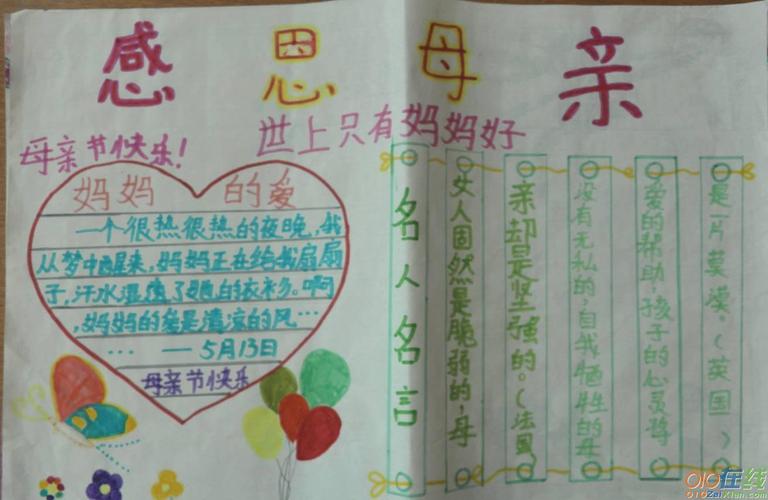 感恩母亲
世上只有妈妈好
母亲节快乐!
妈妈的爱
一个很热很热的夜晚,我
从梦中醒来,妈妈正在给我扇扇
子,汗水湿透了她的衣衫。啊
,妈妈的爱是清凉的风…
… — 5月13日
母亲节快乐
名人名言
女人固然是脆弱的,母
亲却是坚强的。(法国
没有无私的,自我牺牲的母
爱的帮助,孩子的心灵将
是一片荒漠。(英国)
010在线
010ZaiXian.com